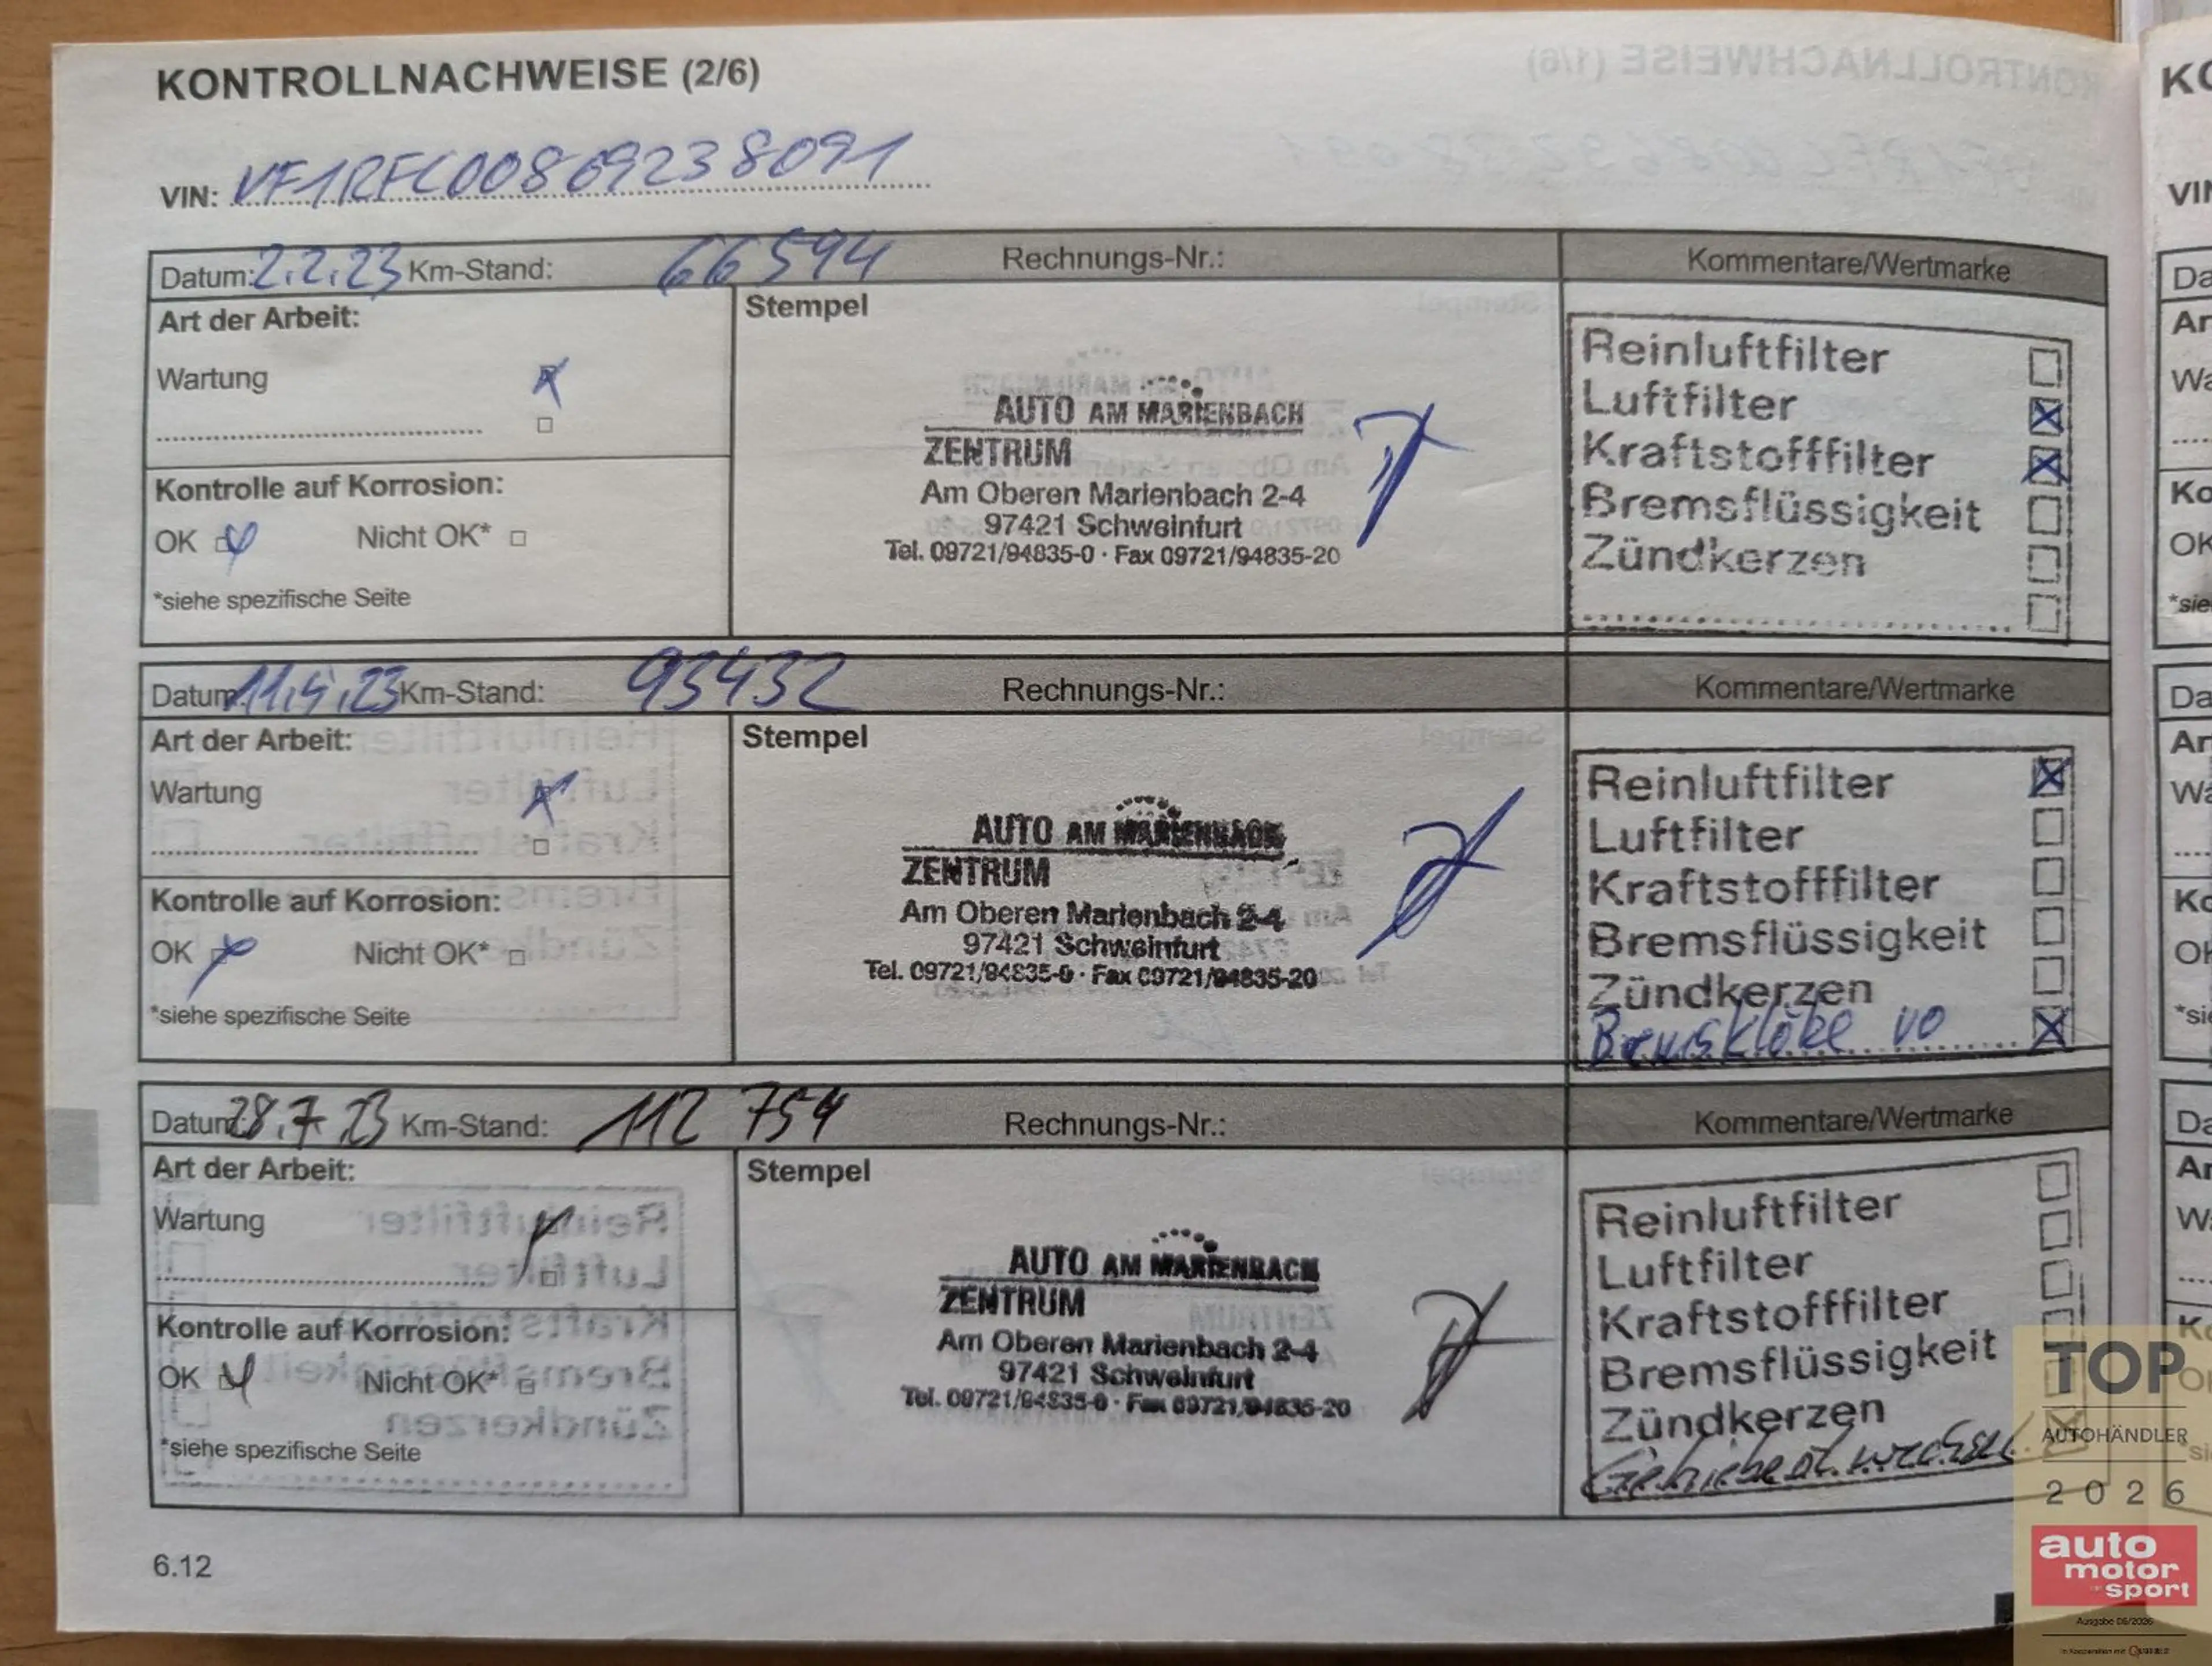 KONTROLLNACHWEISE (2/6)
VIN: VF1RFC00869238091
Datum: 2.2.23 Km-Stand: 66594 Rechnungs-Nr.: Kommentare/Wertmarke
Art der Arbeit:
Wartung
Kontrolle auf Korrosion:
OK Nicht OK*
*siehe spezifische Seite
Stempel
AUTO AM MARIENBACH
ZENTRUM
Am Oberen Marienbach 2-4
97421 Schweinfurt
Tel. 09721/94835-0 · Fax 09721/94835-20
Reinluftfilter
Luftfilter
Kraftstofffilter
Bremsflüssigkeit
Zündkerzen
Datum: 11.4.23 Km-Stand: 93432 Rechnungs-Nr.: Kommentare/Wertmarke
Art der Arbeit:
Wartung
Kontrolle auf Korrosion:
OK Nicht OK*
*siehe spezifische Seite
Stempel
AUTO AM MARIENBACH
ZENTRUM
Am Oberen Marienbach 2-4
97421 Schweinfurt
Tel. 09721/94835-0 · Fax 09721/94835-20
Reinluftfilter
Luftfilter
Kraftstofffilter
Bremsflüssigkeit
Zündkerzen
Bremsklöke vo
Datum: 28.7.23 Km-Stand: 112 754 Rechnungs-Nr.: Kommentare/Wertmarke
Art der Arbeit:
Wartung
Kontrolle auf Korrosion:
OK Nicht OK*
*siehe spezifische Seite
Stempel
AUTO AM MARIENBACH
ZENTRUM
Am Oberen Marienbach 2-4
97421 Schweinfurt
Tel. 09721/94835-0 · Fax 09721/94835-20
Reinluftfilter
Luftfilter
Kraftstofffilter
Bremsflüssigkeit
Zündkerzen
Getriebeöl wechsel
6.12
TOP
AUTOHÄNDLER
2026
auto
motor
sport
Ausgabe 06/2026
In Kooperation mit